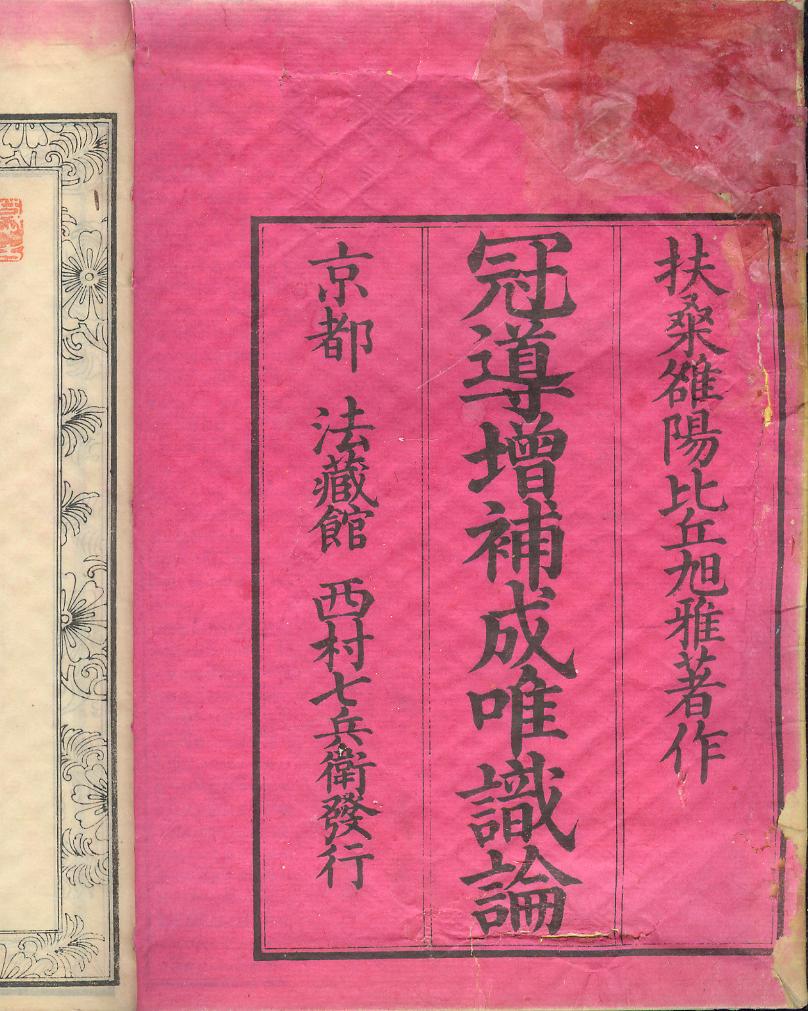 扶桑雒陽比丘旭雅著作
冠導增補成唯識論
京都 法藏館 西村七兵衛發行